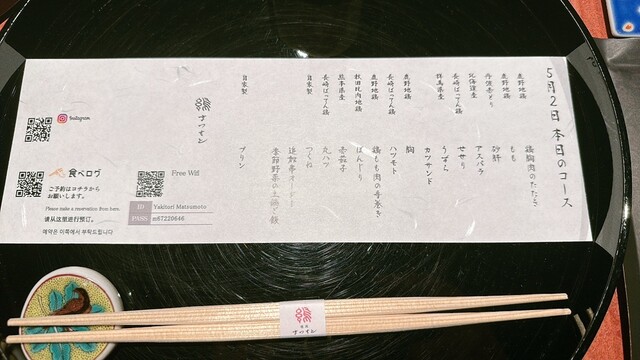 5月2日 本日のコース
鹿野地鶏 鶏胸肉のたたき
鹿野地鶏 もも
丹波赤どり 砂肝
北海道産 アスパラ
長崎ばってん鶏 せせり
群馬県産 うずら
カツサンド
鹿野地鶏 胸
長崎ばってん鶏 ハツモト
鹿野地鶏 鶏もも肉の手巻き
秋田比内地鶏 ぼんじり
熊本県産 赤茄子
長崎ばってん鶏 丸ハツ
自家製 つくね
追加串オーダー
季節野菜の土鍋ご飯
自家製 プリン
まつもと
Instagram
食べログ
ご予約はコチラから
お願いします。
Please make a reservation from here.
请从这里进行预订。
예약은 이쪽에서 부탁드립니다
Free Wifi
ID Yakitori Matsumoto
PASS m67220646
まつもと